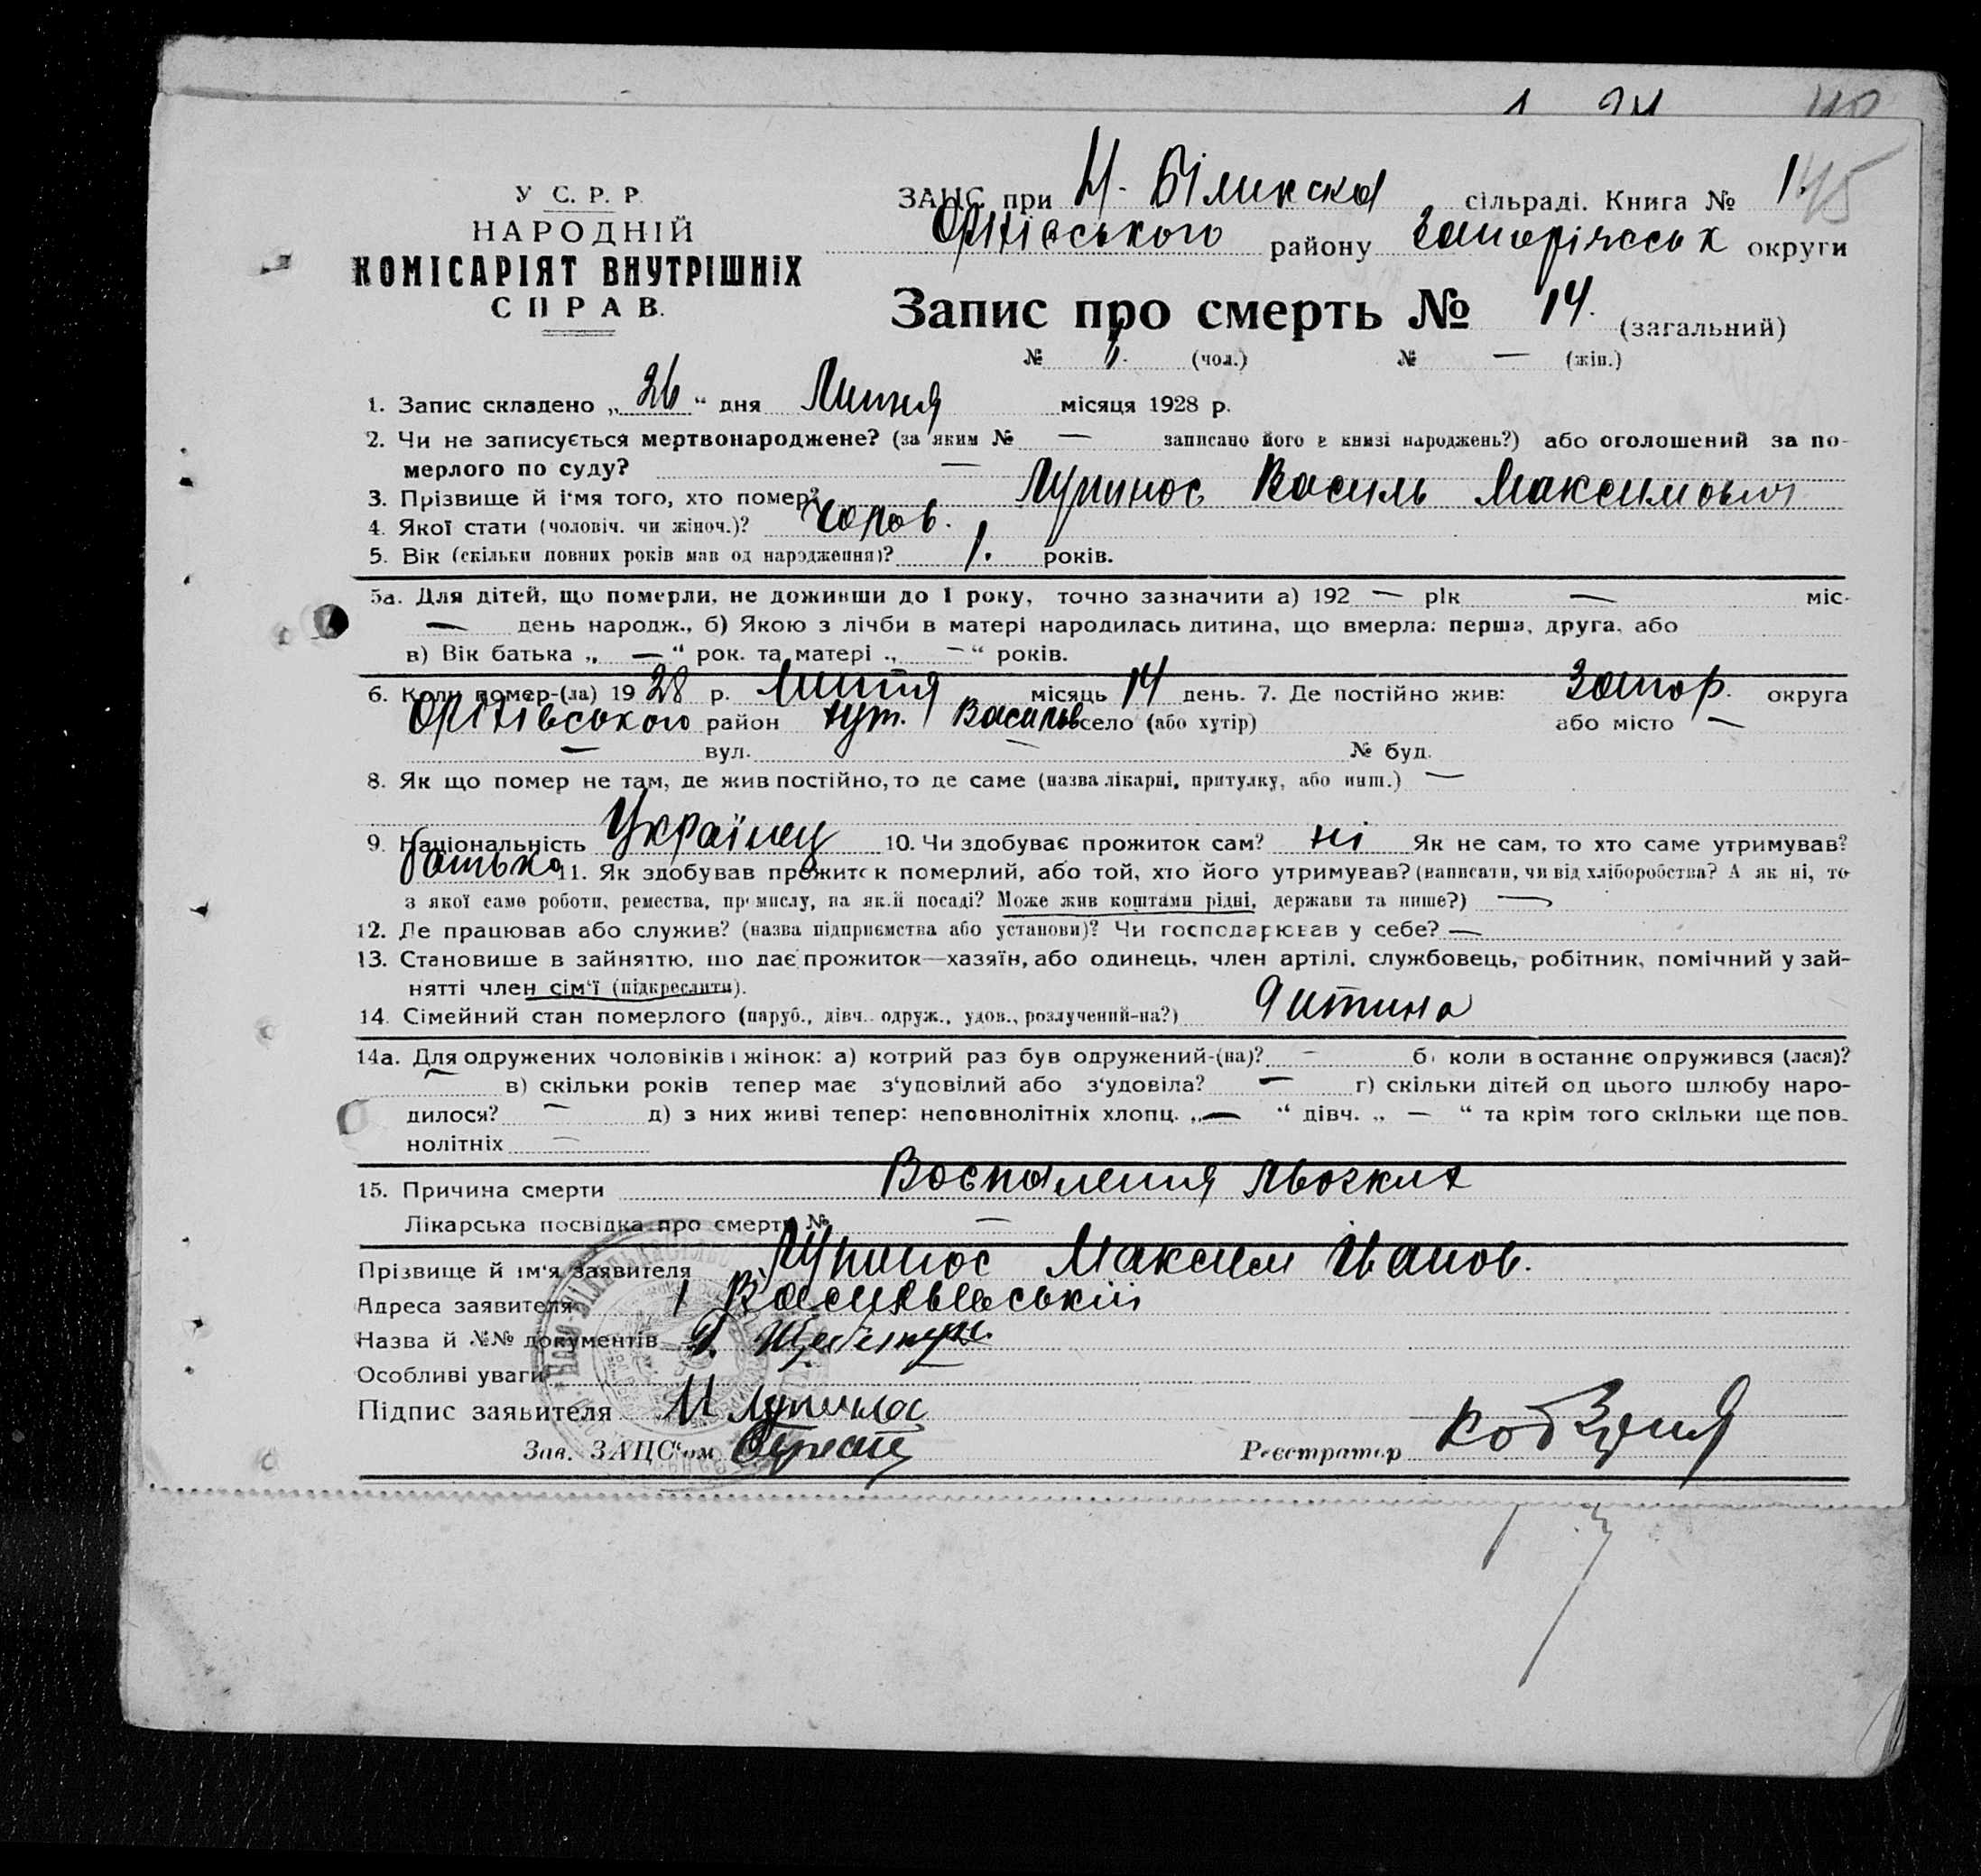 У С. Р. Р.
НАРОДНІЙ
КОМІСАРІЯТ ВНУТРІШНІХ
СПРАВ.
ЗАЦС при сільраді. Книга № 1. 45
Оріхівського району Запоріжськ округи
Запис про смерть № 14. (загальний)
№ (чол.) № — (жін.)
1. Запис складено „ 26 “ дня Липня місяця 1928 р.
2. Чи не записується мертвонароджене? (за яким № — записано його в книзі народжень?) або оголошений за по-
мерлого по суду? —
3. Прізвище й і'мя того, хто помер? Лупинос Василь Максимович
4. Якої стати (чоловіч. чи жіноч.)? Чолов.
5. Вік (скільки повних років мав од народження)? 1. років.
5а. Для дітей, що померли, не доживши до 1 року, точно зазначити а) 192 — рік — міс-
— день народж., б) Якою з лічби в матері народилась дитина, що вмерла: перша, друга, або
в) Вік батька „ — “ рок. та матері „ — “ років.
6. Коли помер-(ла) 19 28 р. Липня місяць 14 день. 7. Де постійно жив: Запор. округа
Оріхівського район хут. Васильв село (або хутір) або місто —
— вул. — № буд.
8. Як що помер не там, де жив постійно, то де саме (назва лікарні, притулку, або инш.) —
9. Національність Українец 10. Чи здобуває прожиток сам? ні Як не сам, то хто саме утримував?
батько 11. Як здобував прожиток померлий, або той, хто його утримував? (написати, чи від хліборобства? А як ні, то
з якої саме роботи, ремества, промислу, на якій посаді? Може жив коштами рідні, держави та инше?) —
12. Де працював або служив? (назва підприємства або установи)? Чи господарював у себе? —
13. Становище в зайняттю, що дає прожиток—хазяїн, або одинець, член артілі, службовець, робітник, помічний у зай-
нятті член сім'ї (підкреслити).
14. Сімейний стан померлого (паруб., дівч. одруж., удов., розлучений-на?) Дитина
14а. Для одружених чоловіків і жінок: а) котрий раз був одружений-(на)? — б) коли востаннє одружився (лася)?
— в) скільки років тепер має з'уповілий або з'удовіла? — г) скільки дітей од цього шлюбу наро-
дилося? — д) з них живі тепер: неповнолітніх хлопц. „ — “ дівч. „ — “ та крім того скільки ще пов-
нолітніх —
15. Причина смерти Воспаления льогких
Лікарська посвідка про смерть № —
Прізвище й ім'я заявителя Лупинос Максим Іванов.
Адреса заявителя
Назва й №№ документів
Особливі уваги
Підпис заявителя М Лупинос
Зав. ЗАЦС'ом Реєстратор